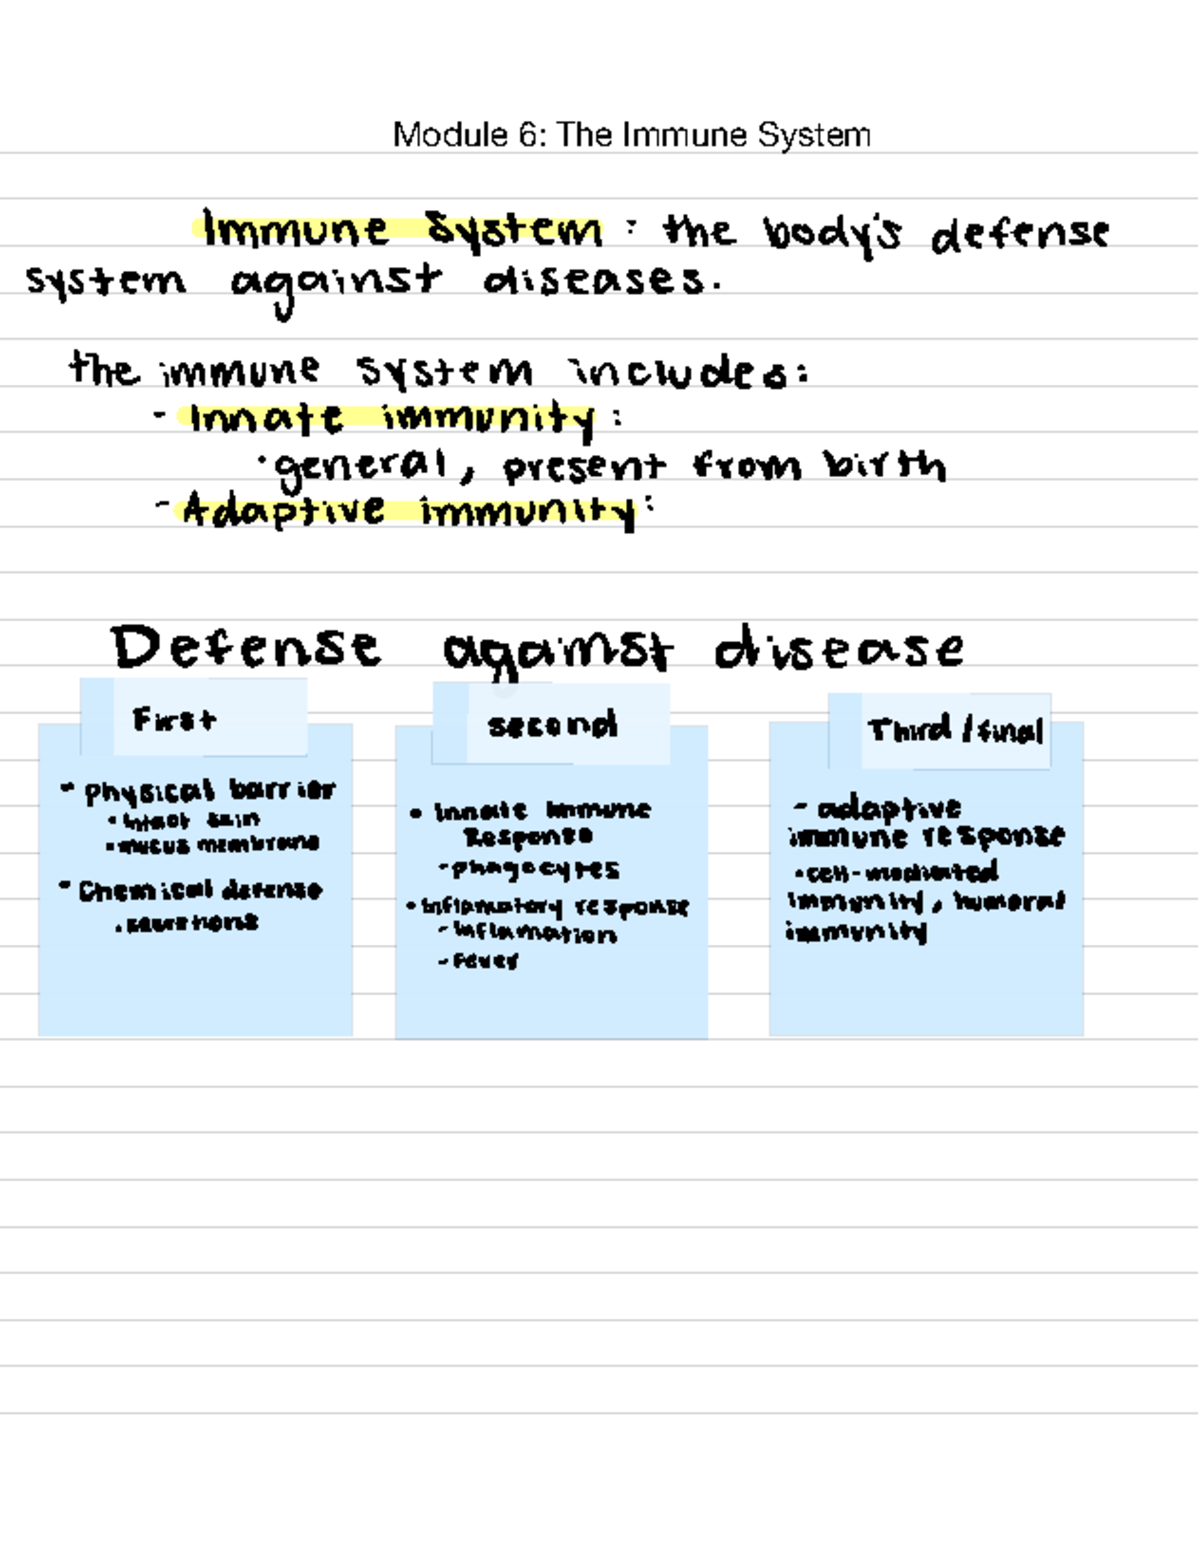 Module 6: The Immune System
Immune System : the body's defense
system against diseases.
the immune system includes:
- Innate immunity :
· general, present from birth
- Adaptive immunity :
Defense against disease
First
- Physical barrier
• intact skin
• mucus membrane
- Chemical defense
• secretions
second
• Innate Immune
Response
- phagocytes
• Inflamatory response
- Inflamation
- Fever
Third / final
- adaptive
immune response
• cell-mediated
immunity, humoral
immunity